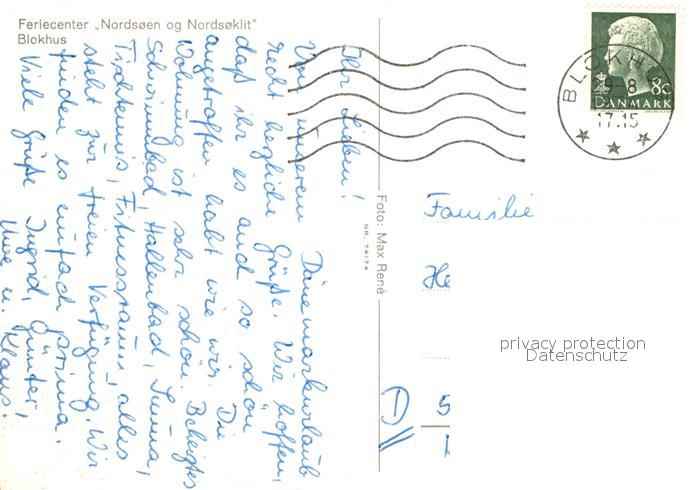 Feriecenter „Nordsøen og Nordsøklit"
Blokhus
Ihr Lieben!
Von unserem Dänemarkurlaub
recht herzliche Grüße. Wir hoffen,
daß ihr es auch so schön
angetroffen habt wie wir. Die
Wohnung ist sehr schön. Beheiztes
Schwimmbad, Hallenbad, Sauna,
Tischtennis, Fitnessraum, alles
steht zur freien Verfügung. Wir
finden es einfach prima.
Viele Grüße Ingrid, Günter,
Uwe u. Klaus!
Foto: Max René
NR. 74174
BLOKHUS
9-8
17.15
80
DANMARK
Familie
He
D
S
privacy protection
Datenschutz